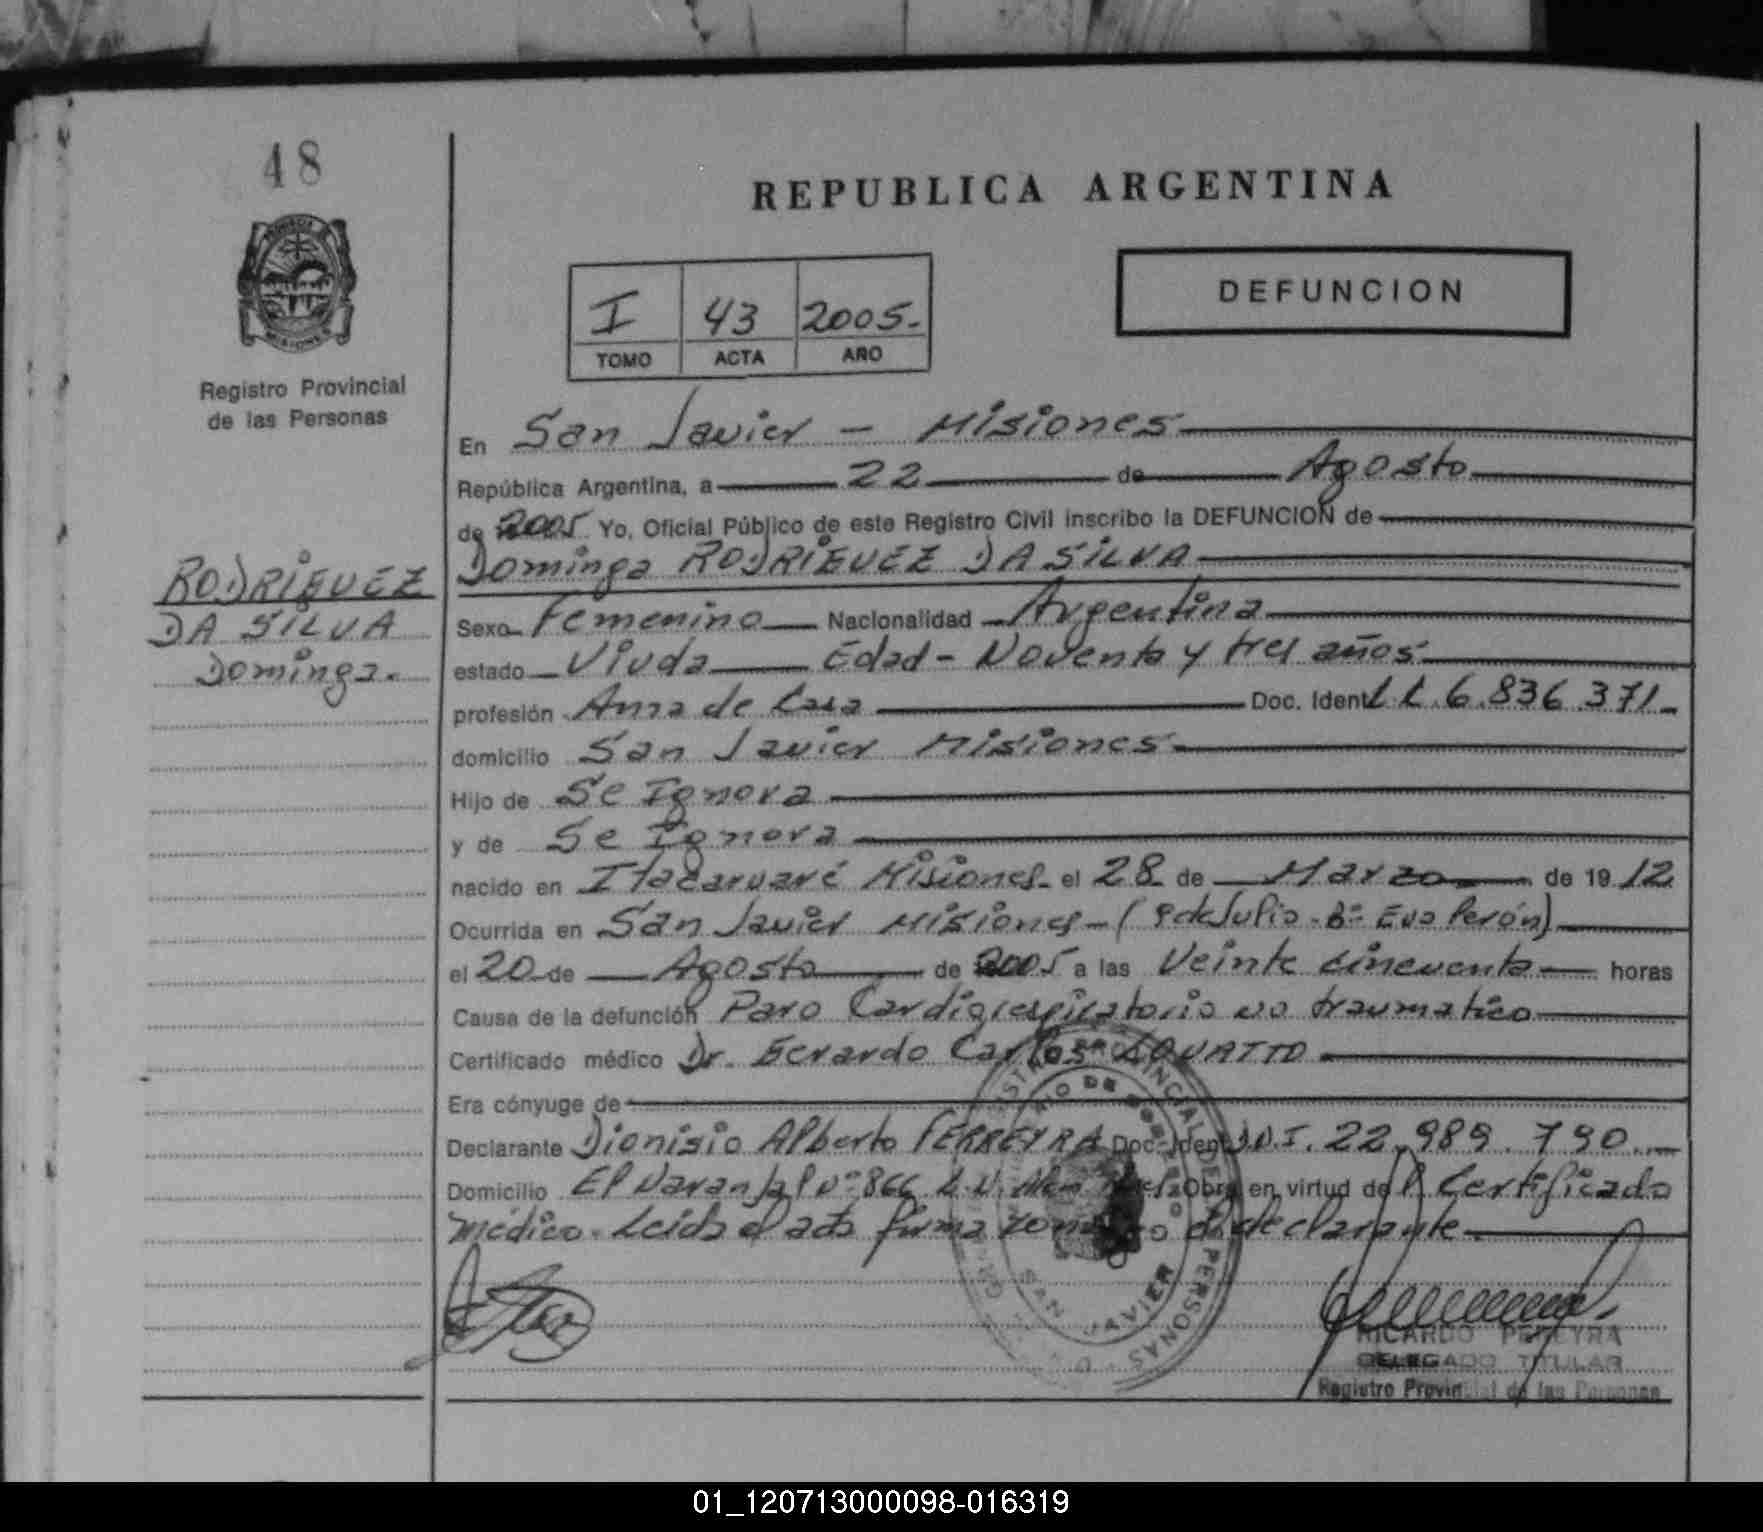 48
REPUBLICA ARGENTINA
MISIONES
Registro Provincial
de las Personas
I 43 2005.-
TOMO ACTA AÑO
DEFUNCION
RODRIGUEZ
DA SILVA
Dominga.
En San Javier - Misiones
República Argentina, a 22 de Agosto
de 2005 Yo, Oficial Público de este Registro Civil inscribo la DEFUNCION de
Dominga RODRIGUEZ DA SILVA
Sexo Femenino Nacionalidad Argentina
estado Viuda Edad - Noventa y tres años
profesión Ama de Casa Doc. Ident L.C. 6.836.371.-
domicilio San Javier Misiones
Hijo de Se Ignora
y de Se Ignora
nacido en Itacaruaré Misiones el 28 de Marzo de 1912
Ocurrida en San Javier Misiones - (9 de Julio - Bº Eva Perón)
el 20 de Agosto de 2005 a las Veinte cincuenta horas
Causa de la defunción Paro Cardiorespiratorio no traumatico
Certificado médico Dr. Gerardo Carlos LOVATTO
Era cónyuge de
Declarante Dionisio Alberto FERREYRA Doc. Ident D.N.I. 22.989.790.
Domicilio El Naranjal Nº 866 L.N. Alem Obra en virtud del Certificado
médico. Leida el acta firma el declarante
SAN JAVIER
RICARDO PEREYRA
DELEGADO TITULAR
Registro Provincial de las Personas
01_120713000098-016319